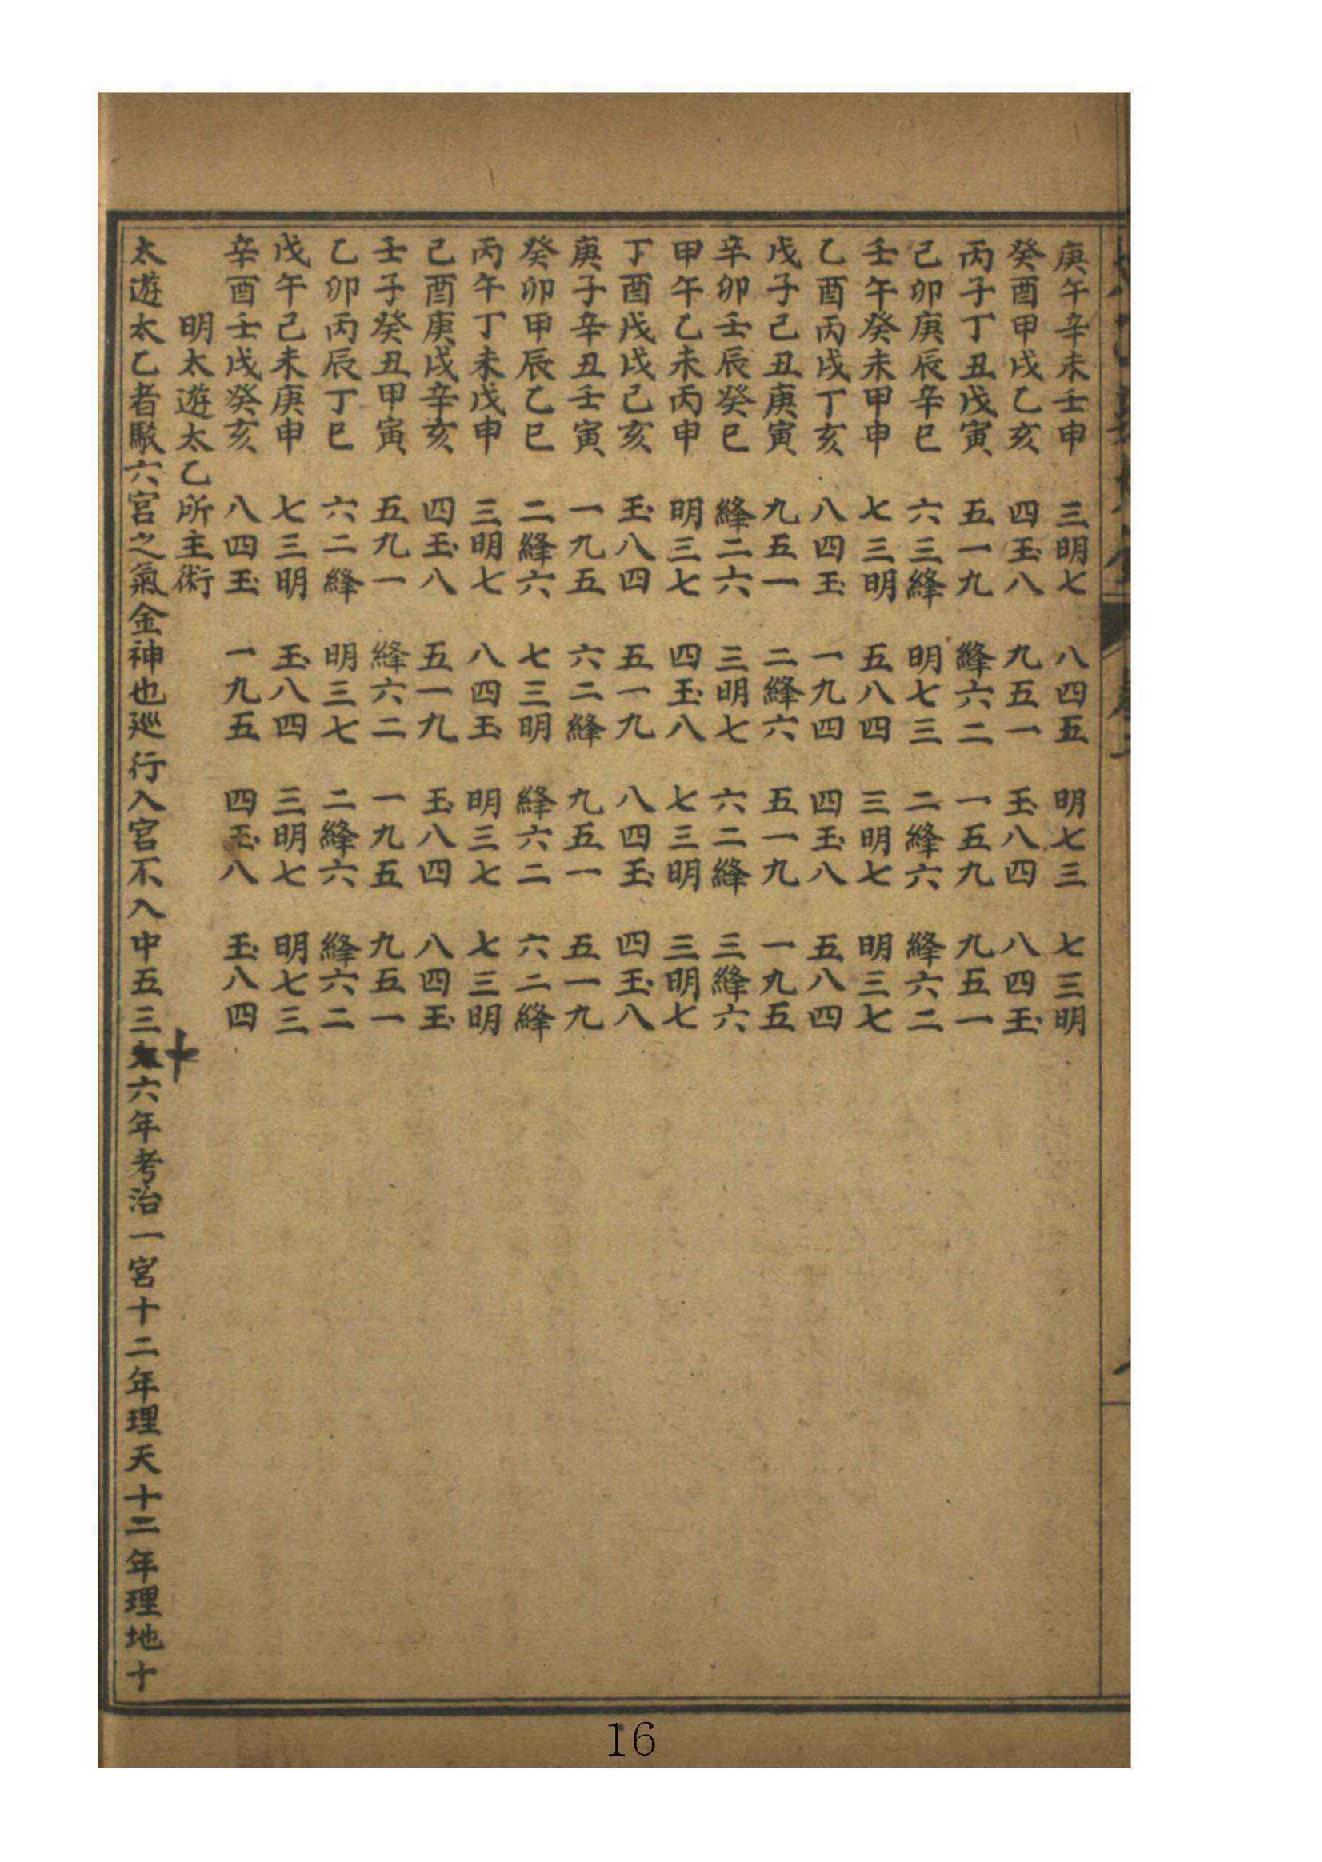 庚午辛未壬申 三明七 八四五 明七三 七三明
癸酉甲戌乙亥 四玉八 九五一 玉八四 八四玉
丙子丁丑戊寅 五一九 絳六二 一五九 九五一
己卯庚辰辛巳 六三絳 明七三 二絳六 絳六二
壬午癸未甲申 七三明 五八四 三明七 明三七
乙酉丙戌丁亥 八四玉 一九四 四玉八 五八四
戊子己丑庚寅 九五一 二絳六 五一九 一九五
辛卯壬辰癸巳 絳二六 三明七 六二絳 三絳六
甲午乙未丙申 明三七 四玉八 七三明 三明七
丁酉戊戌己亥 玉八四 五一九 八四玉 四玉八
庚子辛丑壬寅 一九五 六二絳 九五一 五一九
癸卯甲辰乙巳 二絳六 七三明 絳六二 六二絳
丙午丁未戊申 三明七 八四玉 明三七 七三明
己酉庚戌辛亥 四玉八 五一九 玉八四 八四玉
壬子癸丑甲寅 五九一 絳六二 一九五 九五一
乙卯丙辰丁巳 六二絳 明三七 二絳六 絳六二
戊午己未庚申 七三明 玉八四 三明七 明七三
辛酉壬戌癸亥 八四玉 一九五 四玉八 玉八四
明太遊太乙所主術
太遊太乙者駁六宮之氣金神也巡行入宮不入中五三十六年考治一宮十二年理天十二年理地十
16